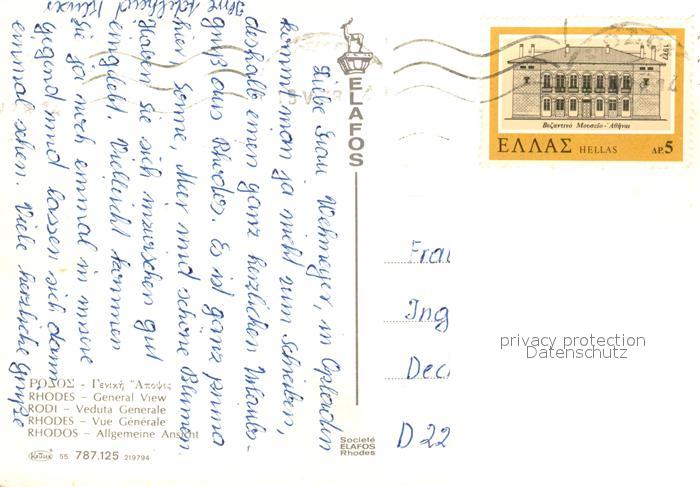 Liebe Frau Wehmeyer, in Opladen
kommt man ja nicht zum Schreiben,
deshalb einen ganz herzlichen Urlaubs-
gruß aus Rhodos. Es ist ganz prima
hier Sonne, Meer und schöne Blumen.
Haben Sie sich inzwischen gut
eingelebt. Vielleicht kommen
Sie ja noch einmal in unsere
Gegend und lassen sich dann
einmal sehen. Viele herzliche Grüße
Ihre
ELAFOS
1977
Βυζαντινό Μουσείο - Ἀθῆναι
ΕΛΛΑΣ HELLAS ΔΡ. 5
Frau
Ing
Dec
D 22
privacy protection
Datenschutz
ΡΟΔΟΣ - Γενική Ἄποψις
RHODES - General View
RODI - Veduta Generale
RHODES - Vue Générale
RHODOS - Allgemeine Ansicht
55 787.125 219794
Société
ELAFOS
Rhodes